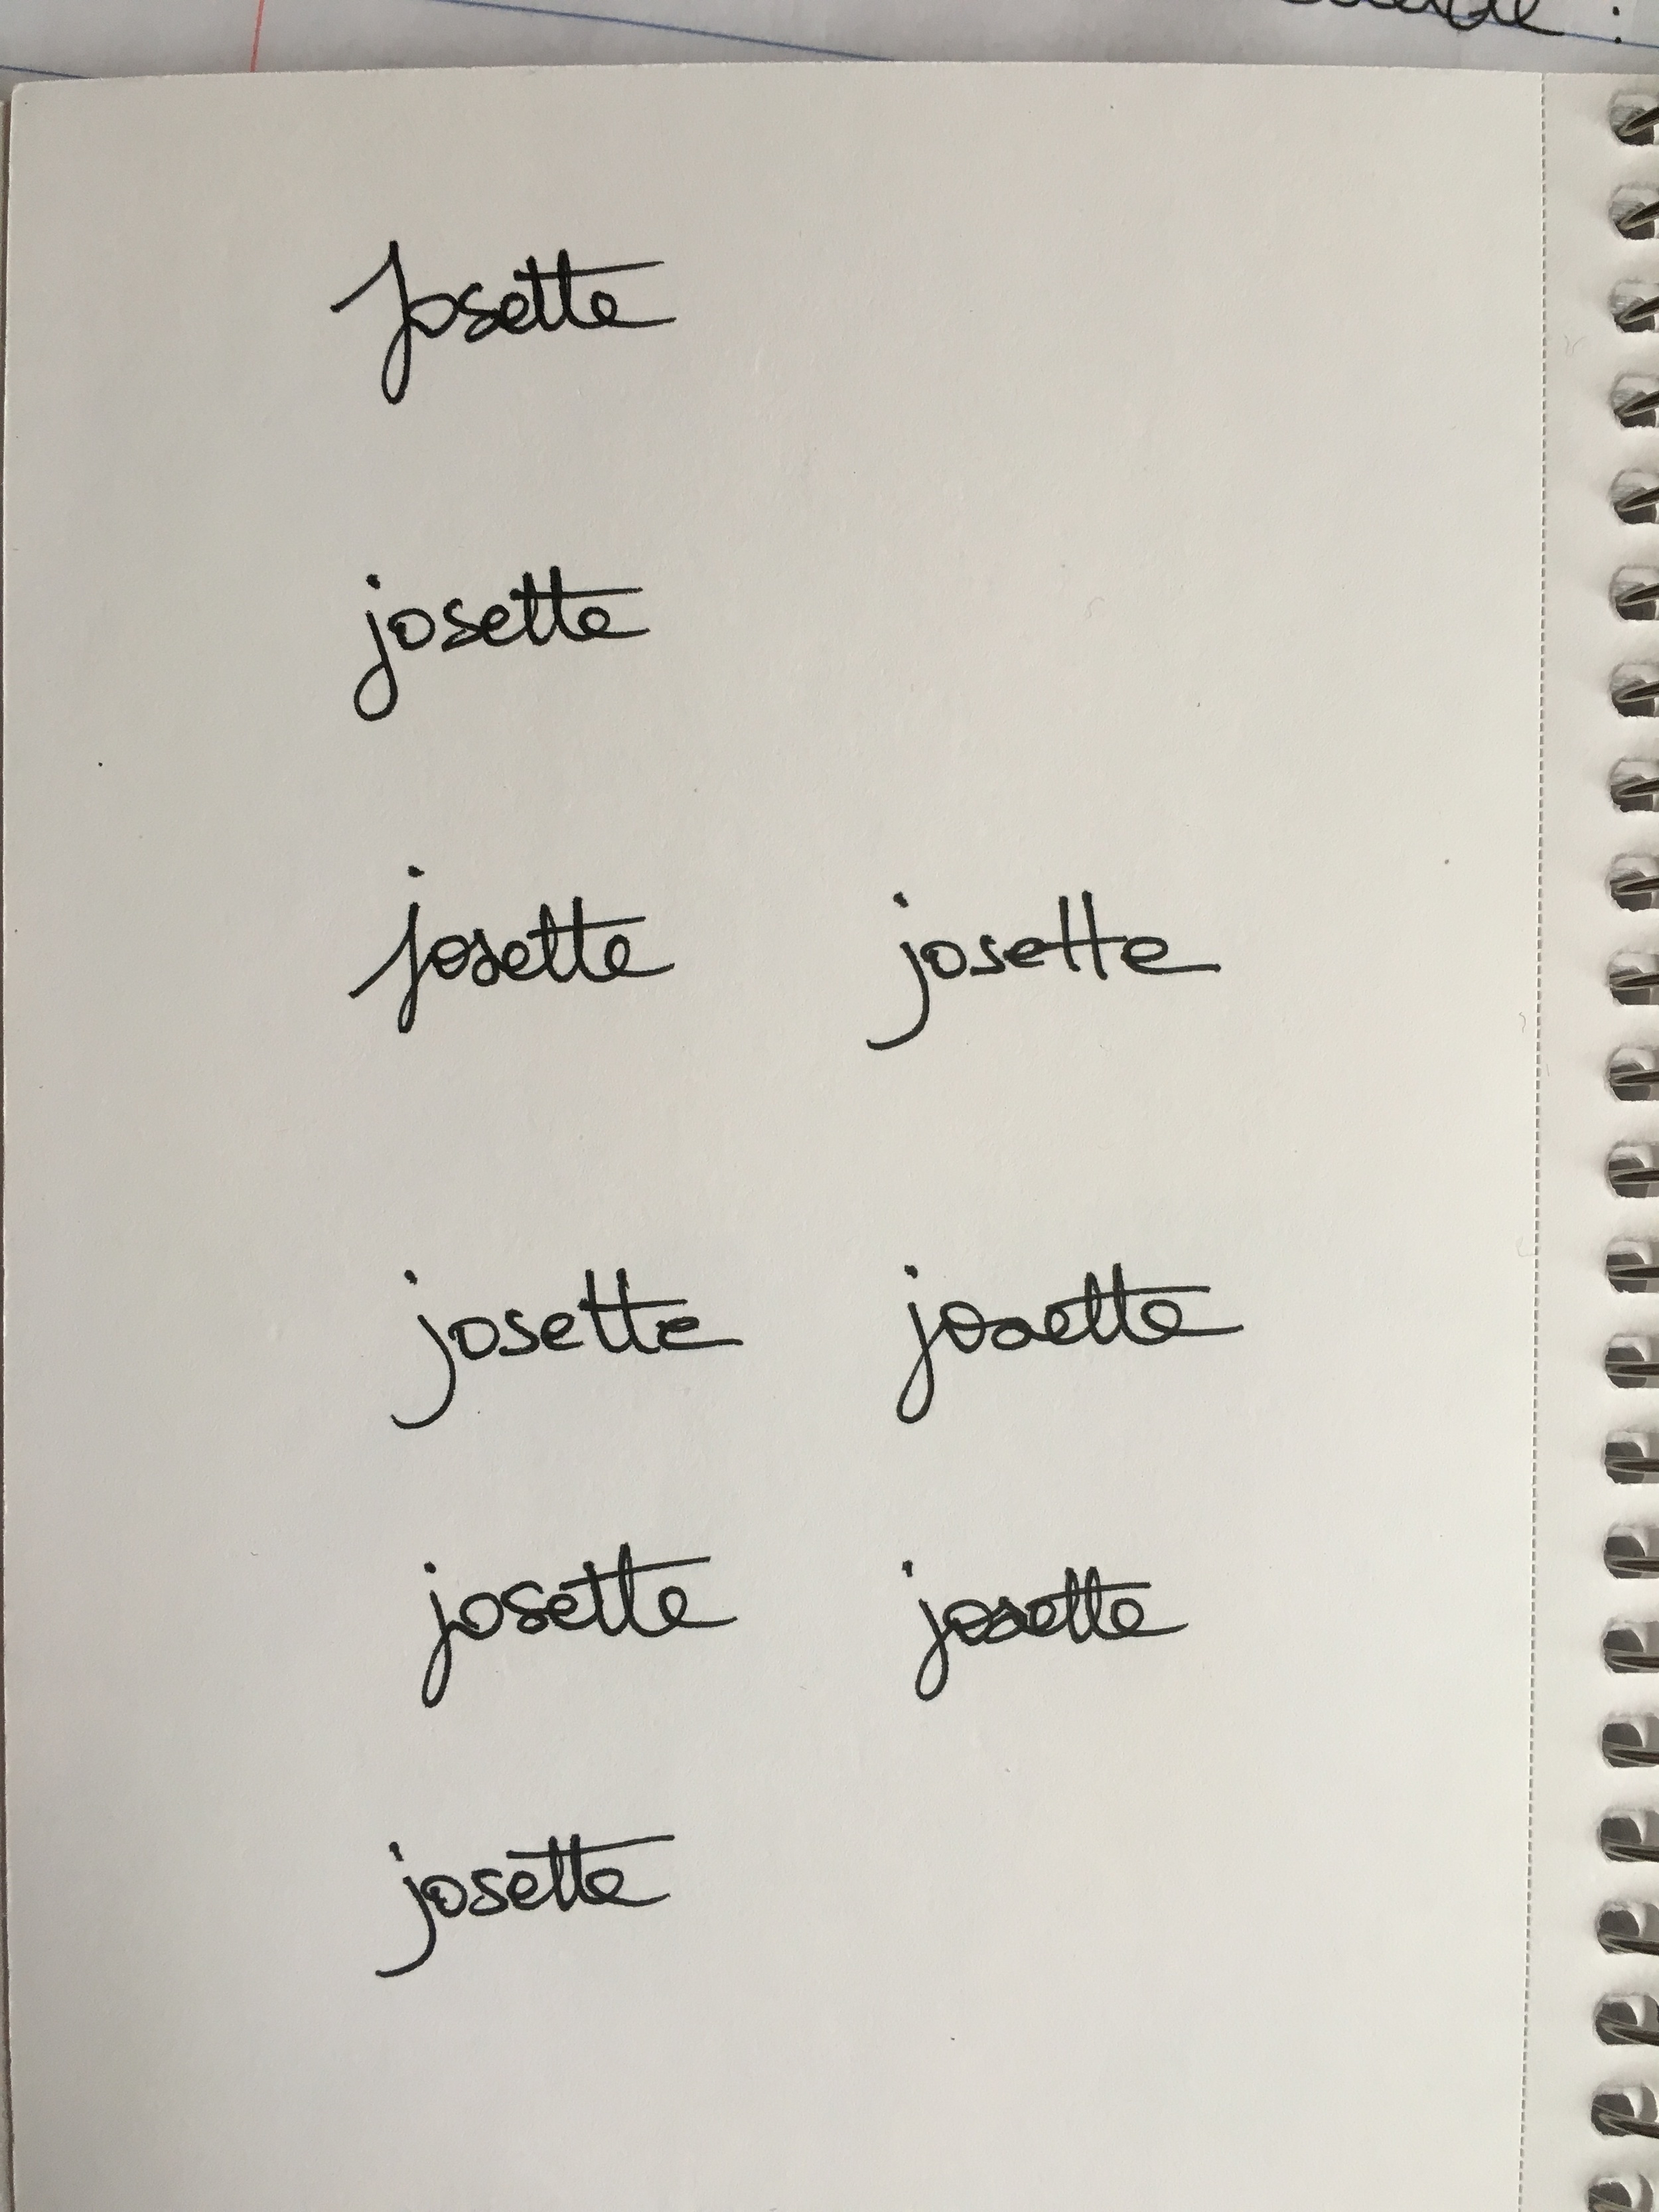 Josette
josette
josette josette
josette josette
josette josette
josette